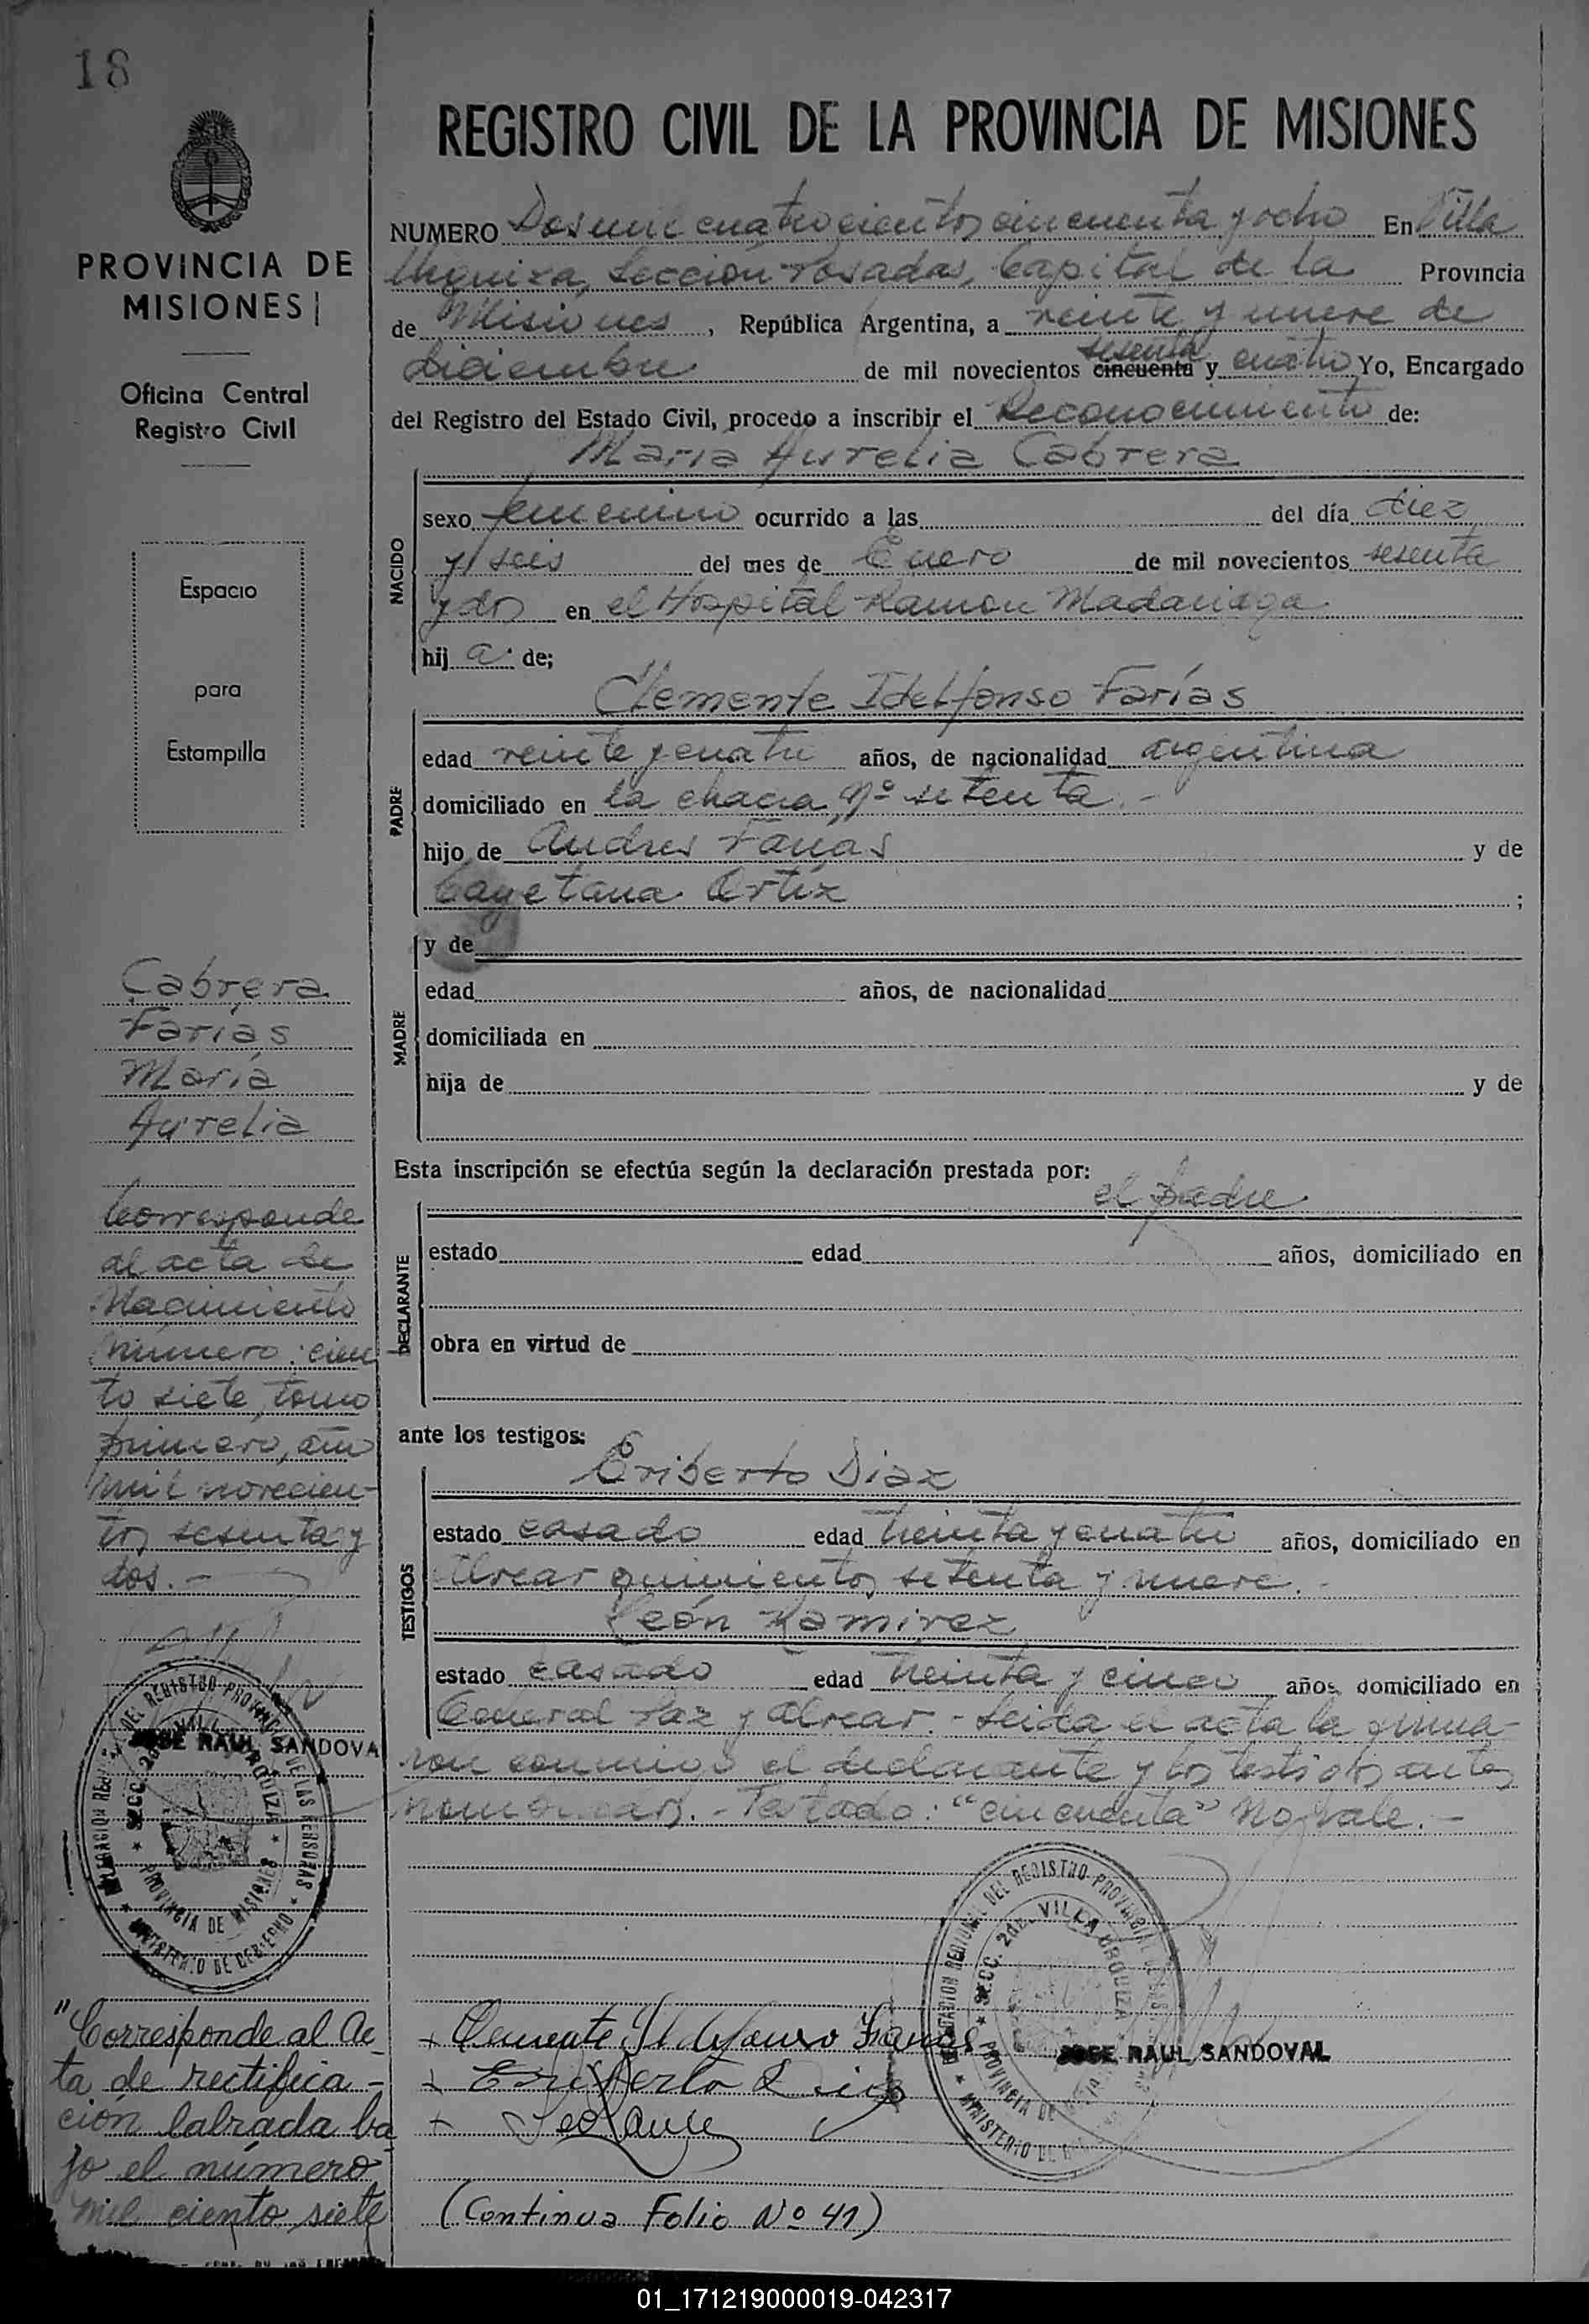 18
PROVINCIA DE
MISIONES
Oficina Central
Registro Civil
Espacio
para
Estampilla
Cabrera
Farías
María
Aurelia
Corresponde
al acta de
Nacimiento
número: cien
to siete, tomo
primero, año
mil novecien-
tos sesenta y
dos.-
JOSE RAUL SANDOVA
DEL REGISTRO PROVINCIAL DE LAS PERSONAS
SECC. 2da. VILLA URQUIZA
PROVINCIA DE MISIONES
MINISTERIO DE GOBIERNO
"Corresponde al Ac
ta de rectifica-
ción labrada ba
jo el número
mil ciento siete
REGISTRO CIVIL DE LA PROVINCIA DE MISIONES
NUMERO Dos mil cuatrocientos cincuenta y ocho En Villa
Urquiza, Sección Posadas, Capital de la Provincia
de Misiones, República Argentina, a veinte y nueve de
diciembre de mil novecientos cincuenta sesenta y cuatro Yo, Encargado
del Registro del Estado Civil, procedo a inscribir el Reconocimiento de:
María Aurelia Cabrera
NACIDO
sexo femenino ocurrido a las del día diez
y seis del mes de Enero de mil novecientos sesenta
y dos en el Hospital Ramon Madariaga
hij a. de;
Clemente Idelfonso Farías
PADRE
edad veinte y cuatro años, de nacionalidad argentina
domiciliado en la chacra Nº setenta.-
hijo de Andres Farías y de
Cayetana Ortíz ;
MADRE
y de
edad años, de nacionalidad
domiciliada en
hija de y de
Esta inscripción se efectúa según la declaración prestada por:
el padre
DECLARANTE
estado edad años, domiciliado en
obra en virtud de
ante los testigos:
Eriberto Diaz
TESTIGOS
estado casado edad treinta y cuatro años, domiciliado en
Alvear quinientos setenta y nueve.-
León Ramirez
estado casado edad treinta y cinco años, domiciliado en
General Paz y Alvear.- Leida el acta la firma-
ron conmigo el declarante y los testigos antes
nombrados.- Testado: "cincuenta" No vale.-
DELEGACION REGIONAL DEL REGISTRO PROVINCIAL DE LAS
SECC. 2da. VILLA URQUIZA
PROVINCIA DE
MINISTERIO DE
+ Clemente Ildefonso Farias
+ Eriberto Diaz
+
JOSE RAUL SANDOVAL
(Continua Folio Nº 41)
01_171219000019-042317